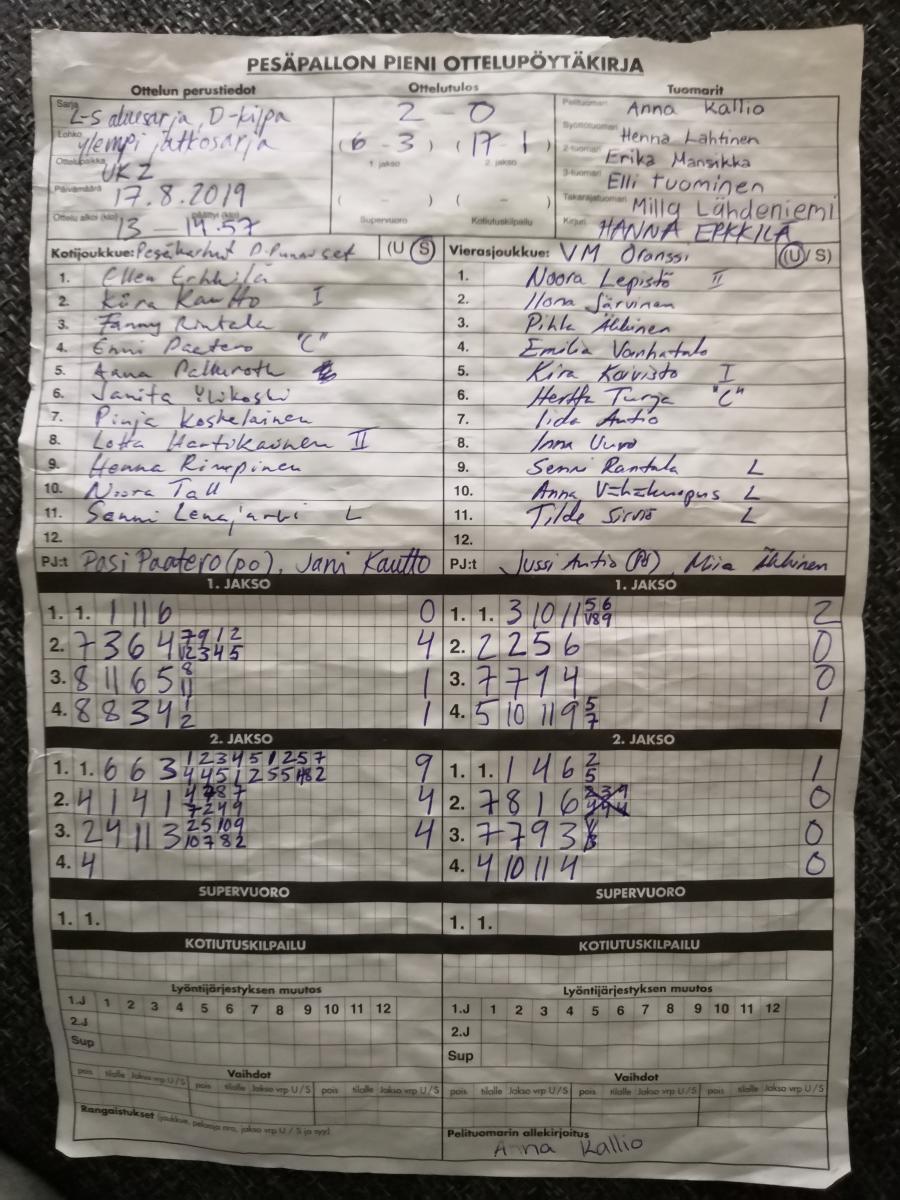 PESÄPALLON PIENI OTTELUPÖYTÄKIRJA
Ottelun perustiedot Ottelutulos Tuomarit
Sarja L-S aluesarja, D-kilpa
Lohko ylempi jatkosarja
Ottelupaikka UK 2
Päivämäärä 17.8.2019
Ottelu alkoi (klo) päättyi (klo)
13 – 14.57
2 – 0
(6 - 3) (17 - 1)
1. jakso 2. jakso
( - ) ( - )
Supervuoro Kotiutuskilpailu
Pelituomari Anna Kallio
Syöttötuomari Henna Lahtinen
2-tuomari Erika Mansikka
3-tuomari Elli Tuominen
Takarajatuomari Milly Lähdeniemi
Kirjuri HANNA ERKKILÄ
Kotijoukkue: Pesäkarhut D-Punaiset (U S)
1. Ellen Erkkilä
2. Kiira Kautto I
3. Fanny Rintala
4. Enni Paatero "C"
5. Anna
6. Janita Ylikoski
7. Pinja Koskelainen
8. Lotta Hartikainen II
9. Henna Rimpinen
10. Noora Tall
11. Sanni L
12.
PJ:t Pasi Paatero (po), Jani Kautto
Vierasjoukkue: VM Oranssi (U/S)
1. Noora Lepistö II
2. Ilona Järvinen
3. Pihla Äkkinen
4. Emilia Vanhatalo
5. Kira Koivisto I
6. Hertta Turja "C"
7. Iida Autio
8. Inna
9. Senni Rantala L
10. Anna L
11. Tilde L
12.
PJ:t Jussi Autio (PJ), Miia Äkkinen
1. JAKSO
1. 1. 1 11 6 0
2. 7 3 6 4 7 9 1 2 4
3. 8 11 6 5 8 11 1
4. 8 8 3 4 1 2 1
1. JAKSO
1. 1. 3 10 11 5 6 2
2. 2 2 5 6 0
3. 7 7 1 4 0
4. 5 10 11 9 5 7 1
2. JAKSO
1. 1. 6 6 3 1 2 3 4 5 1 2 5 7 9
2. 4 1 4 1 4
3. 2 4 11 3 2 5 10 9 10 7 8 2 4
4. 4
2. JAKSO
1. 1. 1 4 6 2 5 1
2. 7 8 1 6 0
3. 7 7 9 3 0
4. 4 10 11 4 0
SUPERVUORO
1. 1.
SUPERVUORO
1. 1.
KOTIUTUSKILPAILU
KOTIUTUSKILPAILU
Lyöntijärjestyksen muutos
1.J 1 2 3 4 5 6 7 8 9 10 11 12
2.J
Sup
Vaihdot
pois tilalle Jakso vrp U/S pois tilalle Jakso vrp U/S pois tilalle Jakso vrp U/S
Rangaistukset (joukkue, pelaaja nro, jakso vrp U / S ja syy)
Lyöntijärjestyksen muutos
1.J 1 2 3 4 5 6 7 8 9 10 11 12
2.J
Sup
Vaihdot
pois tilalle Jakso vrp U/S pois tilalle Jakso vrp U/S pois tilalle Jakso vrp U/S
Pelituomarin allekirjoitus
Anna Kallio